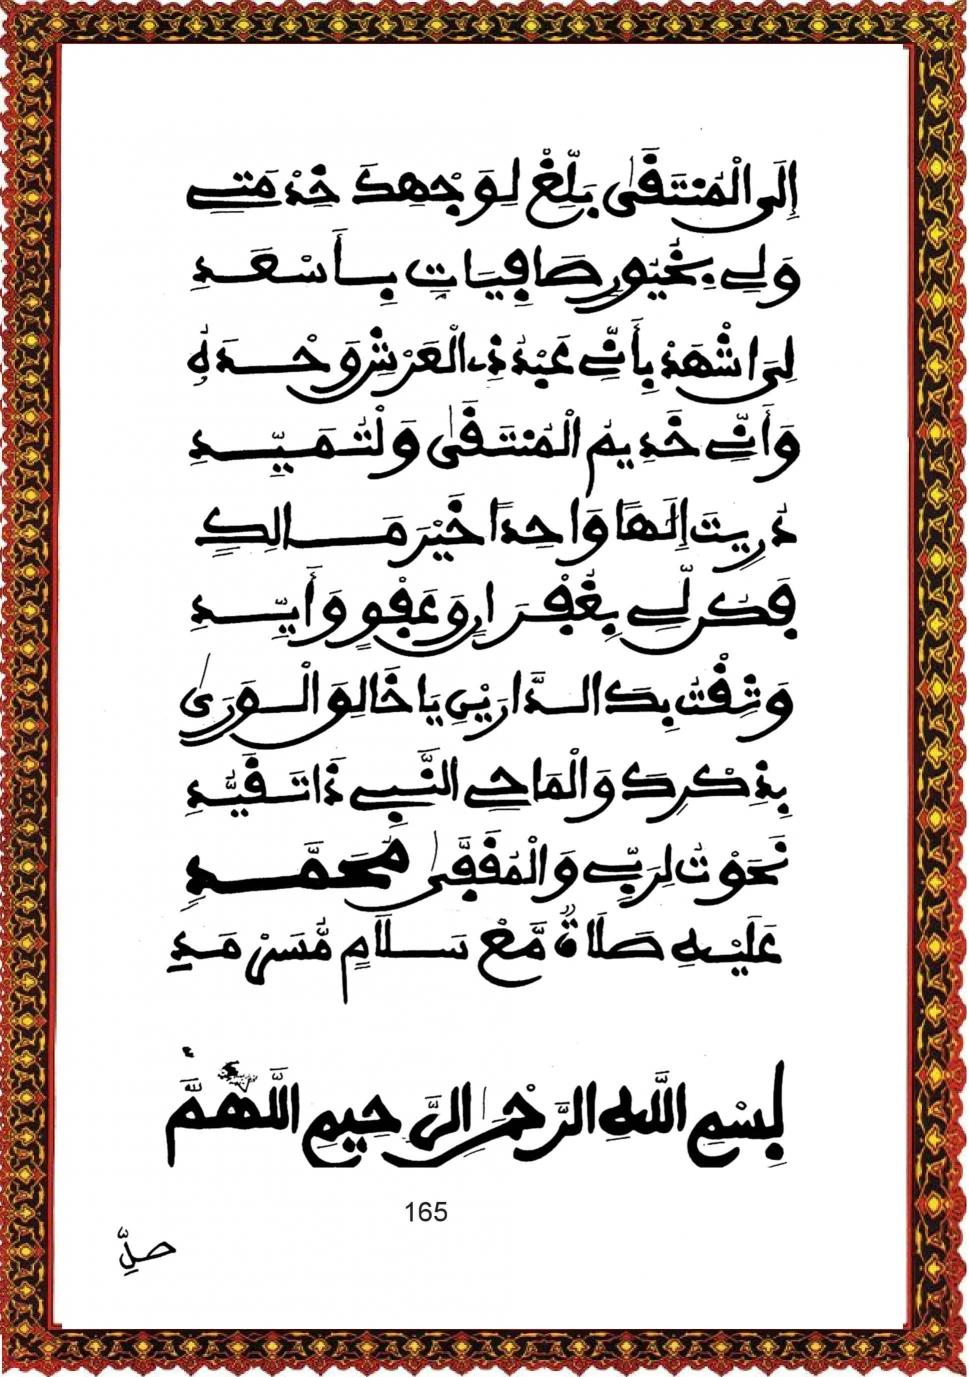 إِلَى الْمُنتَقَى بَلِّغْ لِوَجْهِكَ خِدْمَتِي
وَلِي بِخُيُورٍ صَافِيَاتٍ بِأَسْعَدِ
لِيَ اشْهَدْ بِأَنِّي عَبْدُ ذِ الْعَرْشِ وَحْدَهُ
وَأَنِّي خَدِيمُ الْمُنتَقَى وَلْتُمَيِّدِ
دُرِيتَ إِلَهًا وَاحِدًا خَيْرَ مَالِكٍ
فَكُن لِّي بِغُفْرَانٍ وَعَفْوٍ وَأَيِّدِ
وَثِقْتُ بِكَ الدَّارَيْنِ يَا خَالِقَ الْوَرَى
بِذِكْرِكَ وَالْمَاحِي النَّبِي ذَا تَقَيُّدِ
نَحَوْتُ لِرَبِّي وَالْمُقَفَّى مُحَمَّدِ
عَلَيْهِ صَلَاةٌ مَّعْ سَلَامٍ مُّسَرْمَدِ
بِسْمِ اللَّهِ الرَّحْمَنِ الرَّحِيمِ اللَّهُمَّ
165
صَلِّ